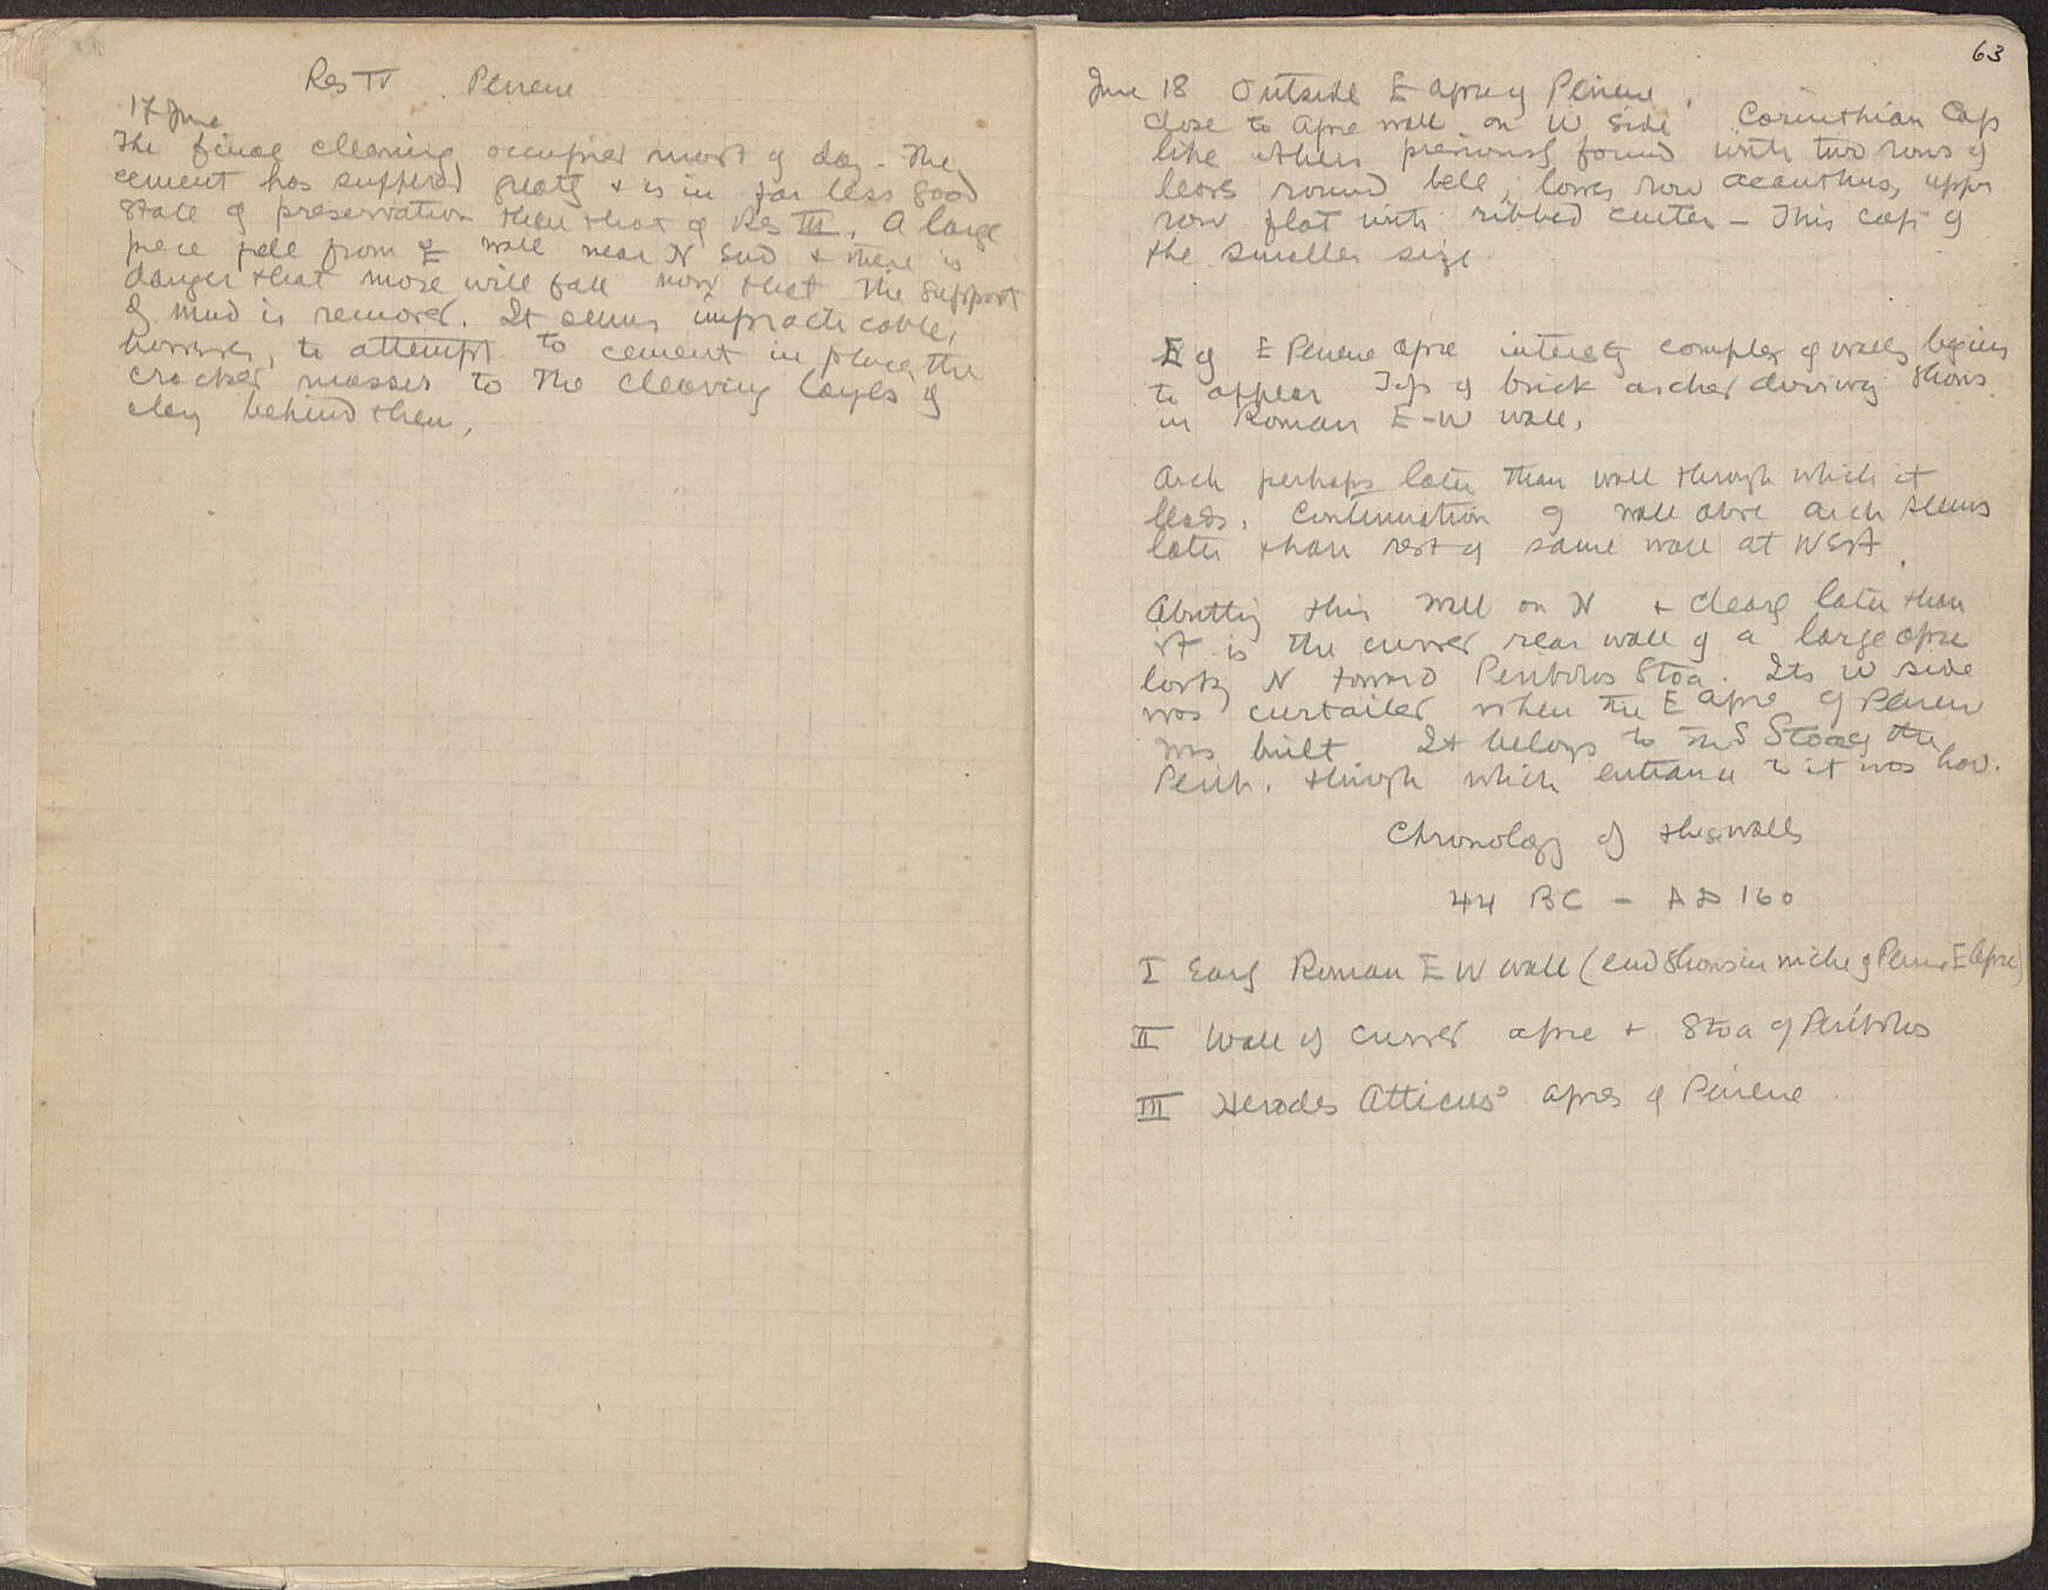 Res IV Peirene
17 June
The final cleaning occupied most of day. The
cement has suffered greatly & is in far less good
state of preservation than that of Res III. A large
piece fell from E wall near N End & there is
danger that more will fall now that the support
of mud is removed. It seems impracticable,
however, to attempt to cement in place the
cracked masses to the cleaving layers of
clay behind them.
63
June 18 Outside E apse of Peirene.
Close to apse wall on W side Corinthian Cap
like others previously found with two rows of
leaves round bell; lower row acanthus, upper
row flat with ribbed center - This cap of
the smaller size
E of E Peirene apse interestg complex of walls begins
to appear Top of brick arched doorway shows
in Roman E-W wall.
Arch perhaps later than wall through which it
leads. Continuation of wall above arch seems
later than rest of same wall at West.
Abutting this wall on N & clearly later than
it is the curved rear wall of a large apse
lookg N toward Peribolos Stoa. Its W side
was curtailed when the E apse of Peirene
was built It belongs to the S Stoa of the
Perib. through which entrance to it was had.
Chronology of these walls
44 BC - AD 160
I Early Roman E W wall (end shows in niche of Peirene E Apse)
II Wall of curved apse + Stoa of Peribolos
III Herodes Atticus' apses of Peirene.